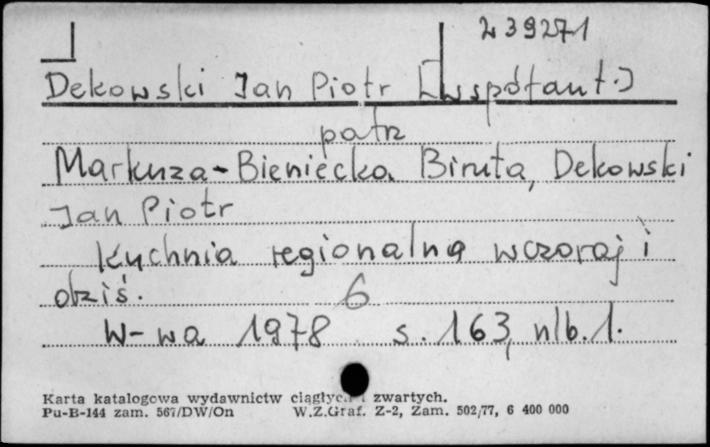 239271
Dekowski Jan Piotr [współaut.]
patrz
Markuza-Bieniecka Biruta, Dekowski
Jan Piotr
Kuchnia regionalna wczoraj i
dziś. 6
W-wa 1978 s. 163, nlb. 1.
Karta katalogowa wydawnictw ciągłych i zwartych.
Pu-B-144 zam. 567/DW/On W.Z.Graf. Z-2, Zam. 502/77, 6 400 000